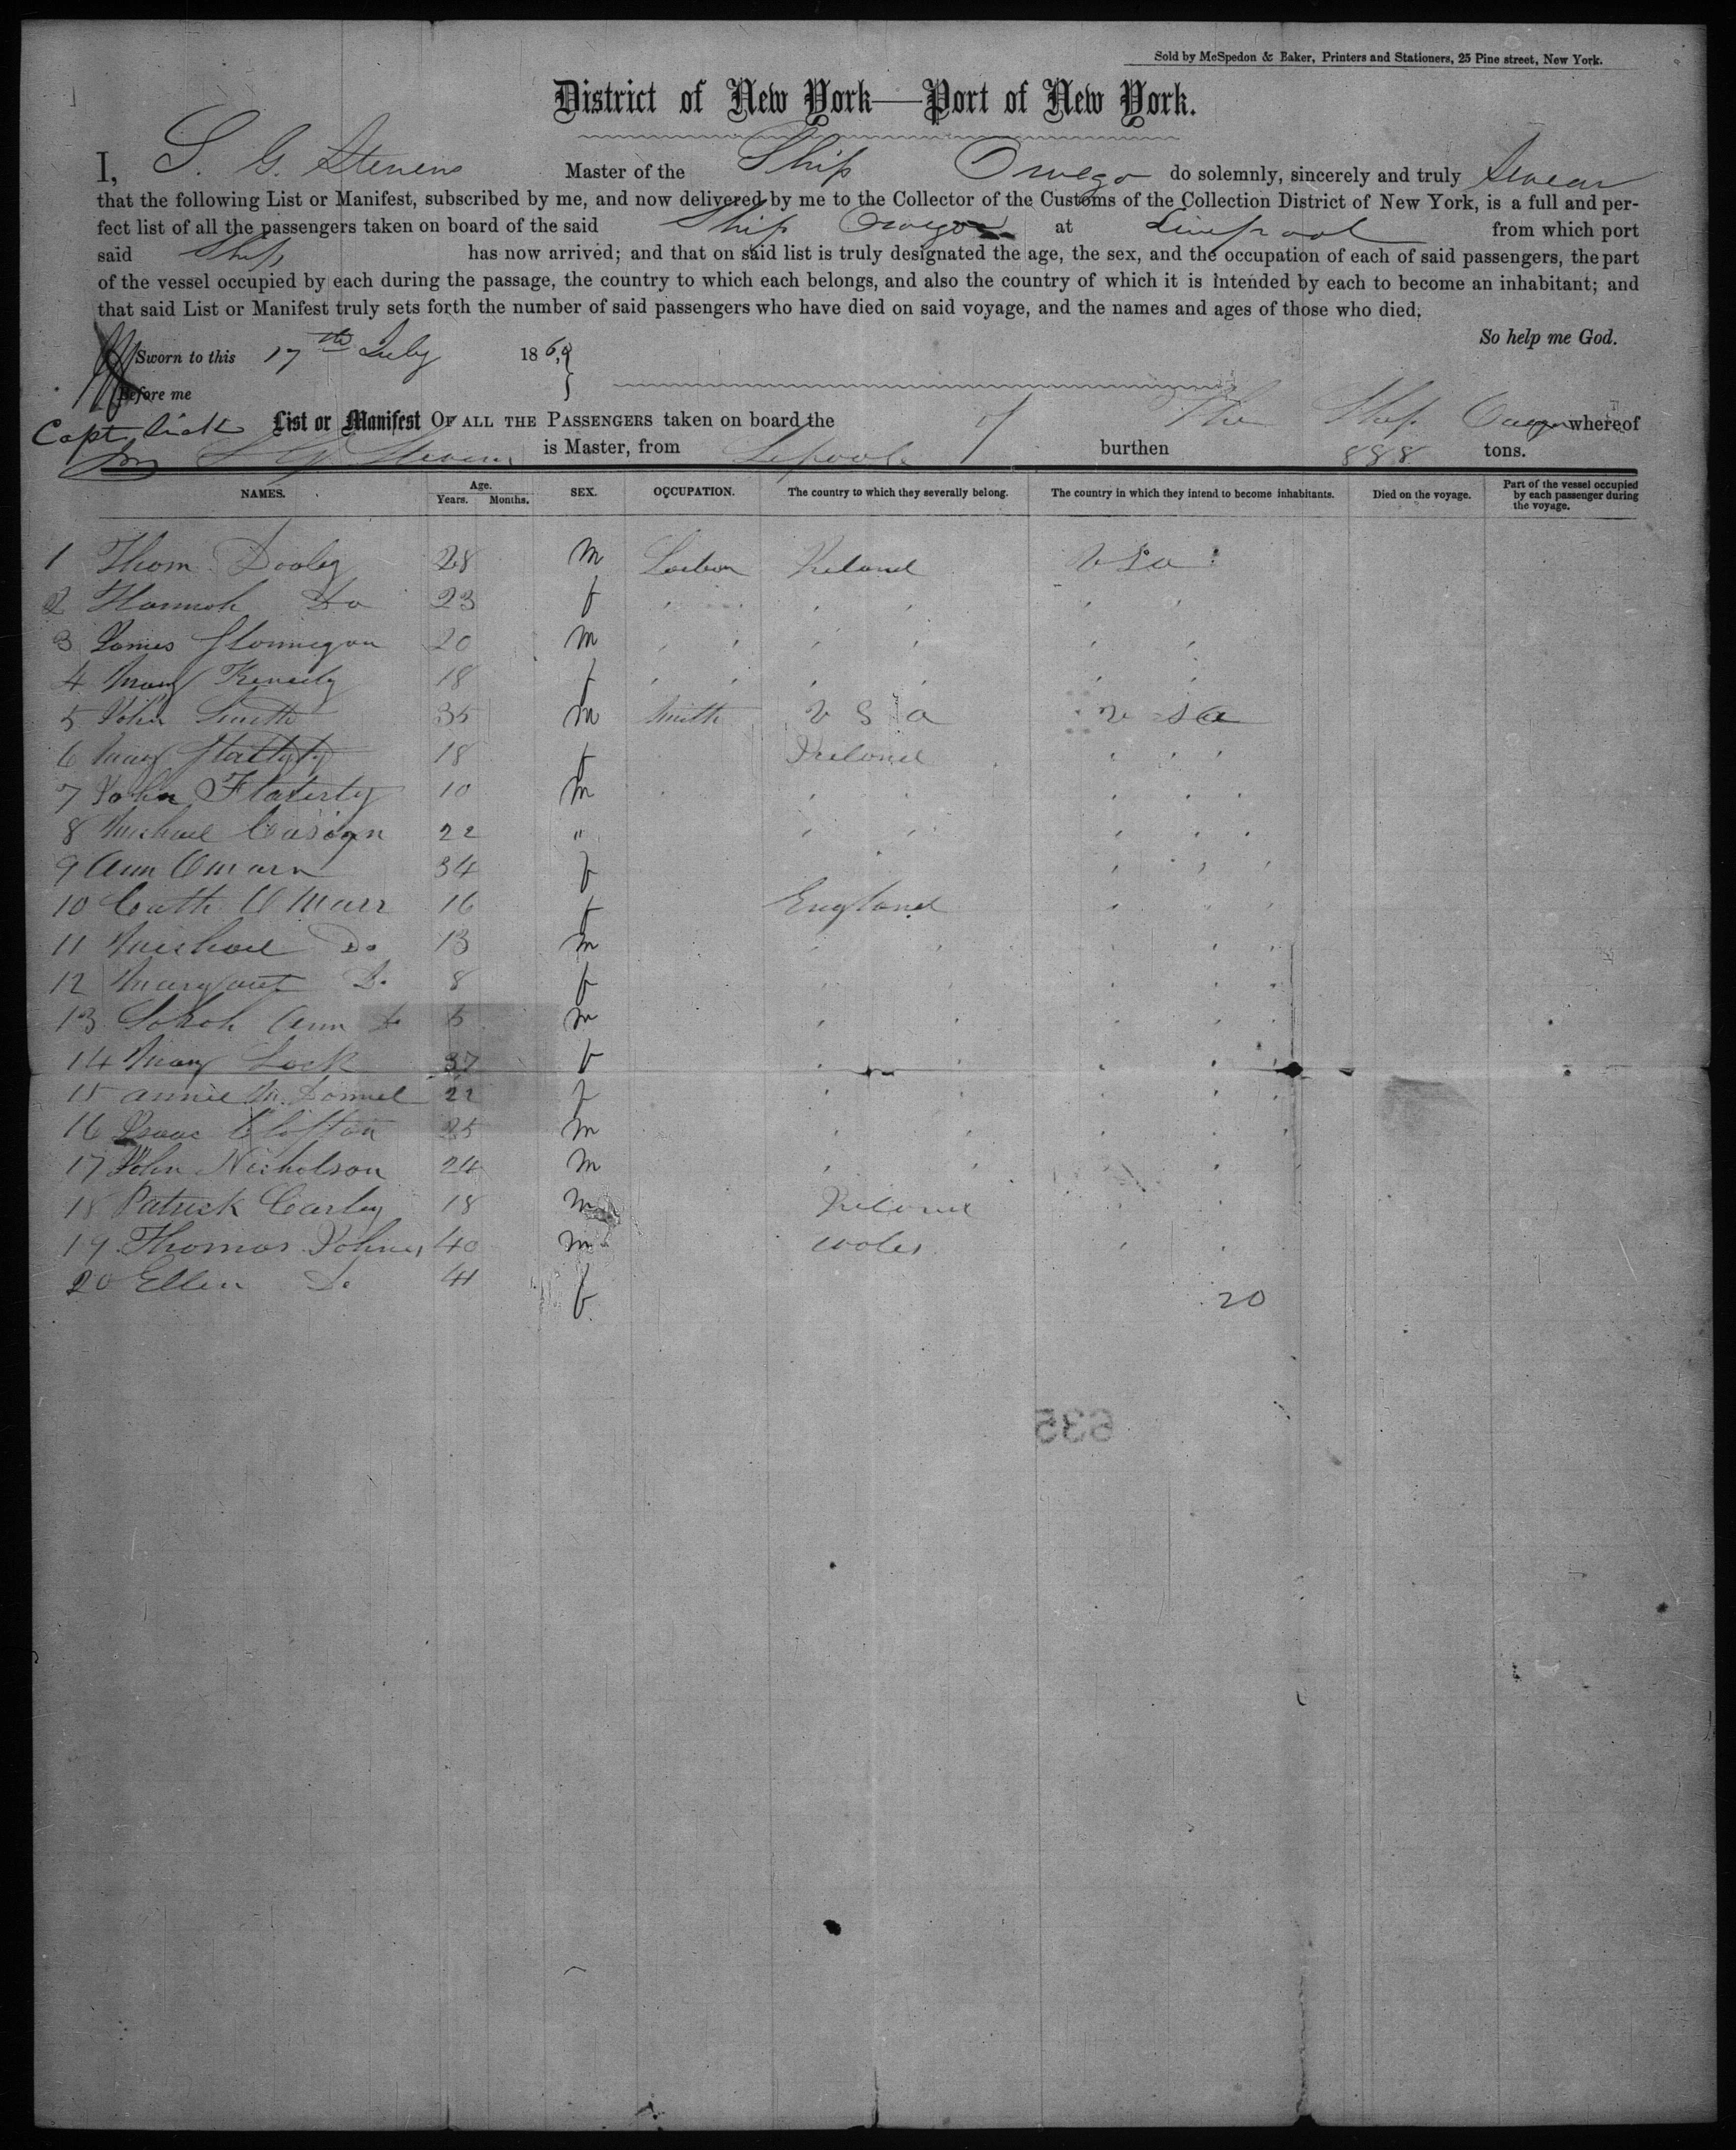 Sold by McSpedon & Baker, Printers and Stationers, 25 Pine street, New York.
District of New York—Port of New York.
I, S. G. Stevens Master of the Ship Owego do solemnly, sincerely and truly Swear
that the following List or Manifest, subscribed by me, and now delivered by me to the Collector of the Customs of the Collection District of New York, is a full and per-
fect list of all the passengers taken on board of the said Ship Owego at Liverpool from which port
said Ship has now arrived; and that on said list is truly designated the age, the sex, and the occupation of each of said passengers, the part
of the vessel occupied by each during the passage, the country to which each belongs, and also the country of which it is intended by each to become an inhabitant; and
that said List or Manifest truly sets forth the number of said passengers who have died on said voyage, and the names and ages of those who died.
So help me God.
Sworn to this 17th July 186
Before me
Capt. Sick List or Manifest OF ALL THE PASSENGERS taken on board the of The Ship Owego whereof
S G Stevens is Master, from Lpool burthen 888 tons.
NAMES. Age. Years. Months. SEX. OCCUPATION. The country to which they severally belong. The country in which they intend to become inhabitants. Died on the voyage. Part of the vessel occupied by each passenger during the voyage.
1 Thom Dooley 28 m Ireland U S a
2 Hannah Do 23 f
3 James Flannegan 20 m
4 Mary 18 f
5 John Smith 35 m Smith U S a U S a
6 Mary 18 f Ireland
7 John Flaherty 10 m
8 Michael 22 "
9 Ann 34 f
10 Cath O Marr 16 f England
11 Michael Do 13 m
12 Margaret Do 8 f
13 Sarah Ann Do m
14 Mary Lock 37 f
15 Annie M. Donnel 22 f
16 Isaac Clifton 25 m
17 John Nicholson 24 m
18 Patrick Carley 18 m Ireland
19 Thomas 40 m Wales
20 Ellen Do 41 f
20
635